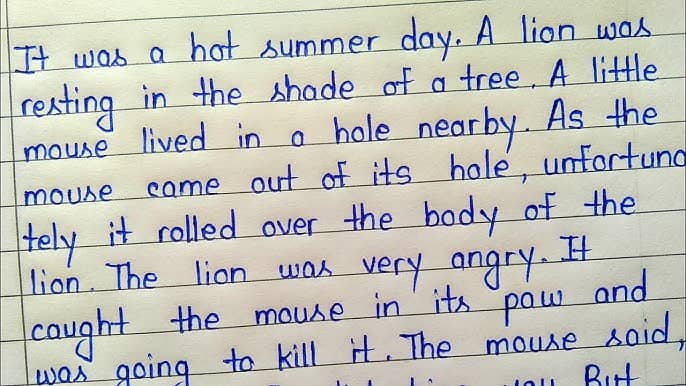 It was a hot summer day. A lion was
resting in the shade of a tree. A little
mouse lived in a hole nearby. As the
mouse came out of its hole, unfortuna
tely it rolled over the body of the
lion. The lion was very angry. It
caught the mouse in its paw and
was going to kill it. The mouse said,
you. But